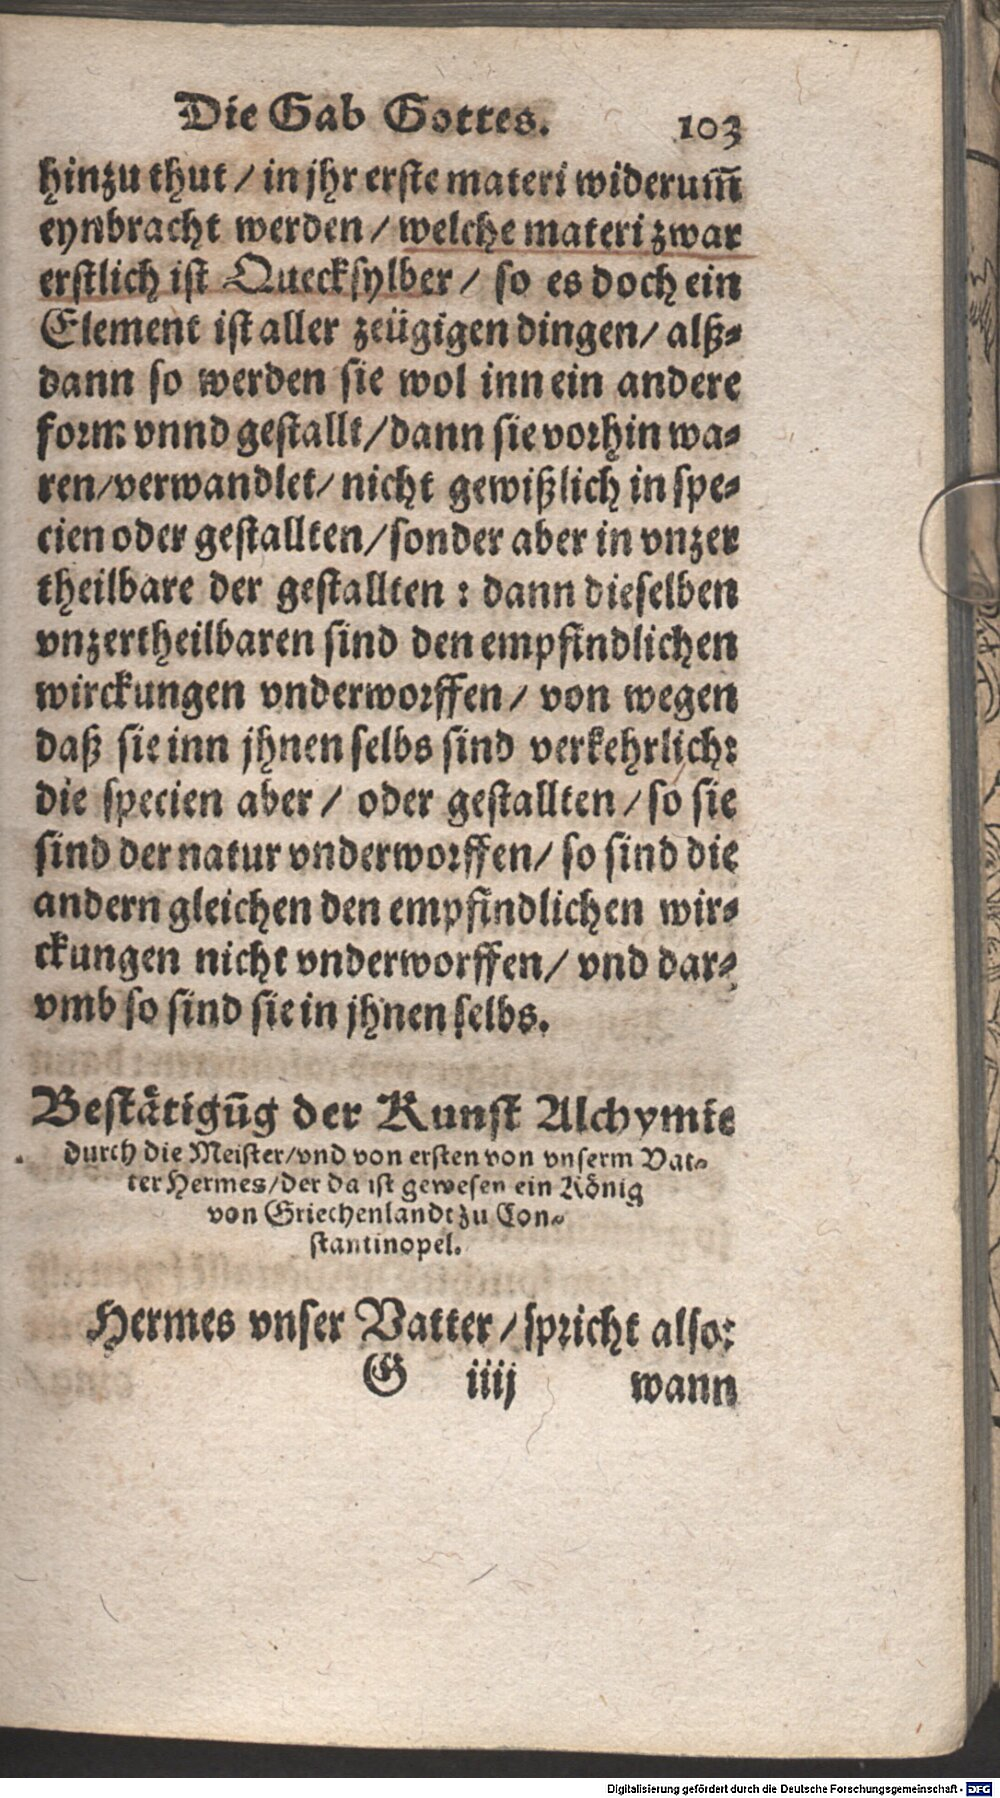 Die Gab Gottes. 103
hinzu thut / in jhr erste materi widerum̃
eynbracht werden / welche materi zwar
erstlich ist Quecksylber / so es doch ein
Element ist aller zeügigen dingen / alß-
dann so werden sie wol inn ein andere
form vnnd gestallt / dann sie vorhin wa-
ren / verwandlet / nicht gewißlich in spe-
cien oder gestallten / sonder aber in vnzer
theilbare der gestallten : dann dieselben
vnzertheilbaren sind den empfindlichen
wirckungen vnderworffen / von wegen
daß sie inn jhnen selbs sind verkehrlich:
die specien aber / oder gestallten / so sie
sind der natur vnderworffen / so sind die
andern gleichen den empfindlichen wir-
ckungen nicht vnderworffen / vnd dar-
vmb so sind sie in jhnen selbs.
Bestätigũg der Kunst Alchymie
durch die Meister / vnd von ersten von vnserm Vat-
ter Hermes / der da ist gewesen ein König
von Griechenlandt zu Con-
stantinopel.
Hermes vnser Vatter / spricht also:
G iiij wann
Digitalisierung gefördert durch die Deutsche Forschungsgemeinschaft - DFG